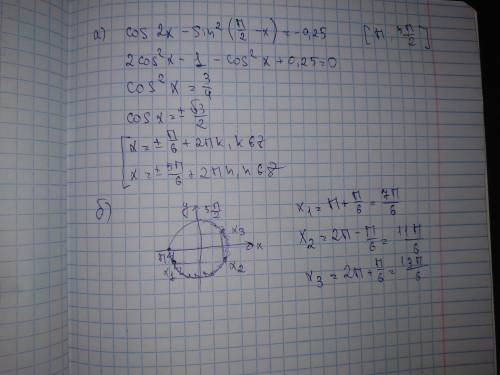 а) cos 2x - sin²(π/2 - x) = -0,25 [π, 5π/2]
2cos²x - 1 - cos²x + 0,25 = 0
cos²x = 3/4
cos x = ± √3/2
[ x = ± π/6 + 2πk, k∈Z
[ x = ± 5π/6 + 2πn, n∈Z
б)
y 5π/2
x₃
π 2π x
x₁ x₂
x₁ = π + π/6 = 7π/6
x₂ = 2π - π/6 = 11π/6
x₃ = 2π + π/6 = 13π/6